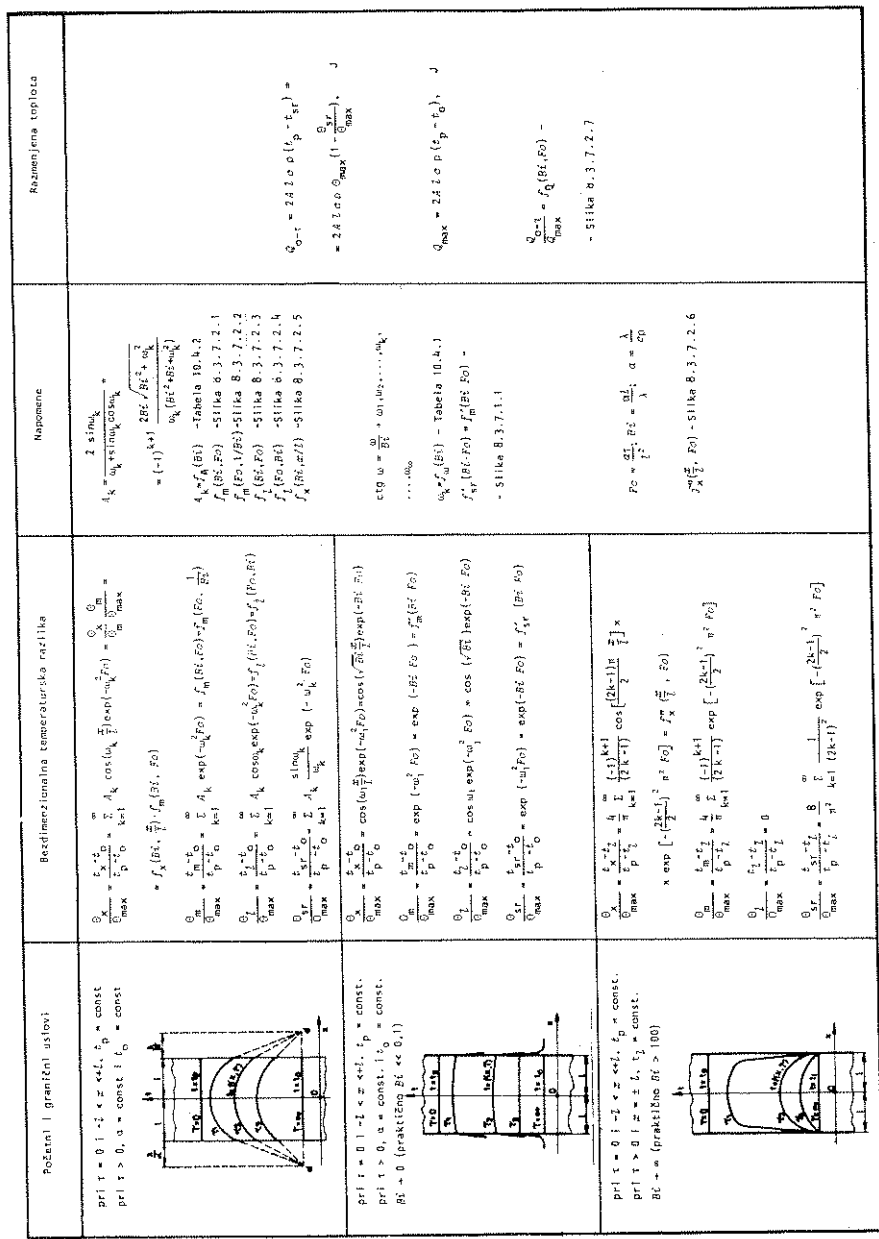 Početni i granični uslovi
Bezdimenzionalna temperaturska razlika
Napomene
Razmenjena toplota
pri τ = 0 i -l < x <+l, t_p = const
pri τ > 0, α = const i t_o = const
Θ_x/Θ_max = (t_x-t_o)/(t_p-t_o) = Σ_{k=1}^∞ A_k cos(ω_k x/l)exp(-ω_k² Fo) = Θ_x/Θ_m Θ_m/Θ_max =
= f_x(Bi, x/l)·f_m(Bi, Fo)
Θ_m/Θ_max = (t_m-t_o)/(t_p-t_o) = Σ_{k=1}^∞ A_k exp(-ω_k² Fo) = f_m(Bi,Fo)=f_m(Fo, 1/Bi)
Θ_l/Θ_max = (t_l-t_o)/(t_p-t_o) = Σ_{k=1}^∞ A_k cosω_k exp(-ω_k² Fo)=f_l(Bi,Fo)=f_l(Fo,Bi)
Θ_sr/Θ_max = (t_sr-t_o)/(t_p-t_o) = Σ_{k=1}^∞ A_k sinω_k/ω_k exp (- ω_k² Fo)
A_k = 2 sinω_k/(ω_k+sinω_k cosω_k) =
= (-1)^{k+1} 2Bi √(Bi² + ω_k²)/(ω_k(Bi²+Bi+ω_k²))
A_k=f_A(Bi) -Tabela 10.4.2
f_m(Bi,Fo) -Slika 8.3.7.2.1
f_m(Fo,1/Bi)-Slika 8.3.7.2.2
f_l(Bi,Fo) -Slika 8.3.7.2.3
f_l(Fo,Bi) -Slika 8.3.7.2.4
f_x(Bi,x/l) -Slika 8.3.7.2.5
pri τ = 0 i -l < x <+l, t_p = const.
pri τ > 0, α = const. i t_o = const.
Bi → 0 (praktično Bi << 0,1)
Θ_x/Θ_max = (t_x-t_o)/(t_p-t_o) = cos(ω_1 x/l)exp(-ω_1² Fo)=cos(√Bi x/l)exp(-Bi Fo)
Θ_m/Θ_max = (t_m-t_o)/(t_p-t_o) = exp (-ω_1² Fo) = exp (-Bi Fo ) = f'_m(Bi Fo)
Θ_l/Θ_max = (t_l-t_o)/(t_p-t_o) = cos ω_1 exp(-ω_1² Fo) = cos (√Bi )exp(-Bi Fo)
Θ_sr/Θ_max = (t_sr-t_o)/(t_p-t_o) = exp (-ω_1² Fo) = exp(-Bi Fo) = f'_sr (Bi Fo)
ctg ω = ω/Bi → ω_1,ω_2,...,ω_k,
...,ω_∞
ω_k=f_ω(Bi) - Tabela 10.4.1
f'_sr (Bi·Fo) = f'_m(Bi Fo) -
- Slika 8.3.7.1.1
pri τ = 0 i -l < x <+l, t_p = const.
pri τ > 0 i x = ± l, t_l = const.
Bi → ∞ (praktično Bi > 100)
Θ_x/Θ_max = (t_x-t_l)/(t_p-t_l) = 4/π Σ_{k=1}^∞ (-1)^{k+1}/(2k-1) cos[(2k-1)π/2 x/l] x
x exp [-((2k-1)/2)² π² Fo] = f''_x (x/l, Fo)
Θ_m/Θ_max = (t_m-t_l)/(t_p-t_l) = 4/π Σ_{k=1}^∞ (-1)^{k+1}/(2k-1) exp [-((2k-1)/2)² π² Fo]
Θ_l/Θ_max = (t_l-t_l)/(t_p-t_l) = 0
Θ_sr/Θ_max = (t_sr-t_l)/(t_p-t_l) = 8/π² Σ_{k=1}^∞ 1/(2k-1)² exp [-((2k-1)/2)² π² Fo]
Fo = aτ/l²; Bi = αl/λ; a = λ/cρ
f''_x(x/l, Fo) - Slika 8.3.7.2.6
Q_{o-τ} = 2A l c ρ (t_p-t_sr) =
= 2A l c ρ Θ_max (1- Θ_sr/Θ_max), J
Q_max = 2A l c ρ (t_p-t_o), J
Q_{o-τ}/Q_max = f_Q (Bi,Fo) -
- Slika 8.3.7.2.7